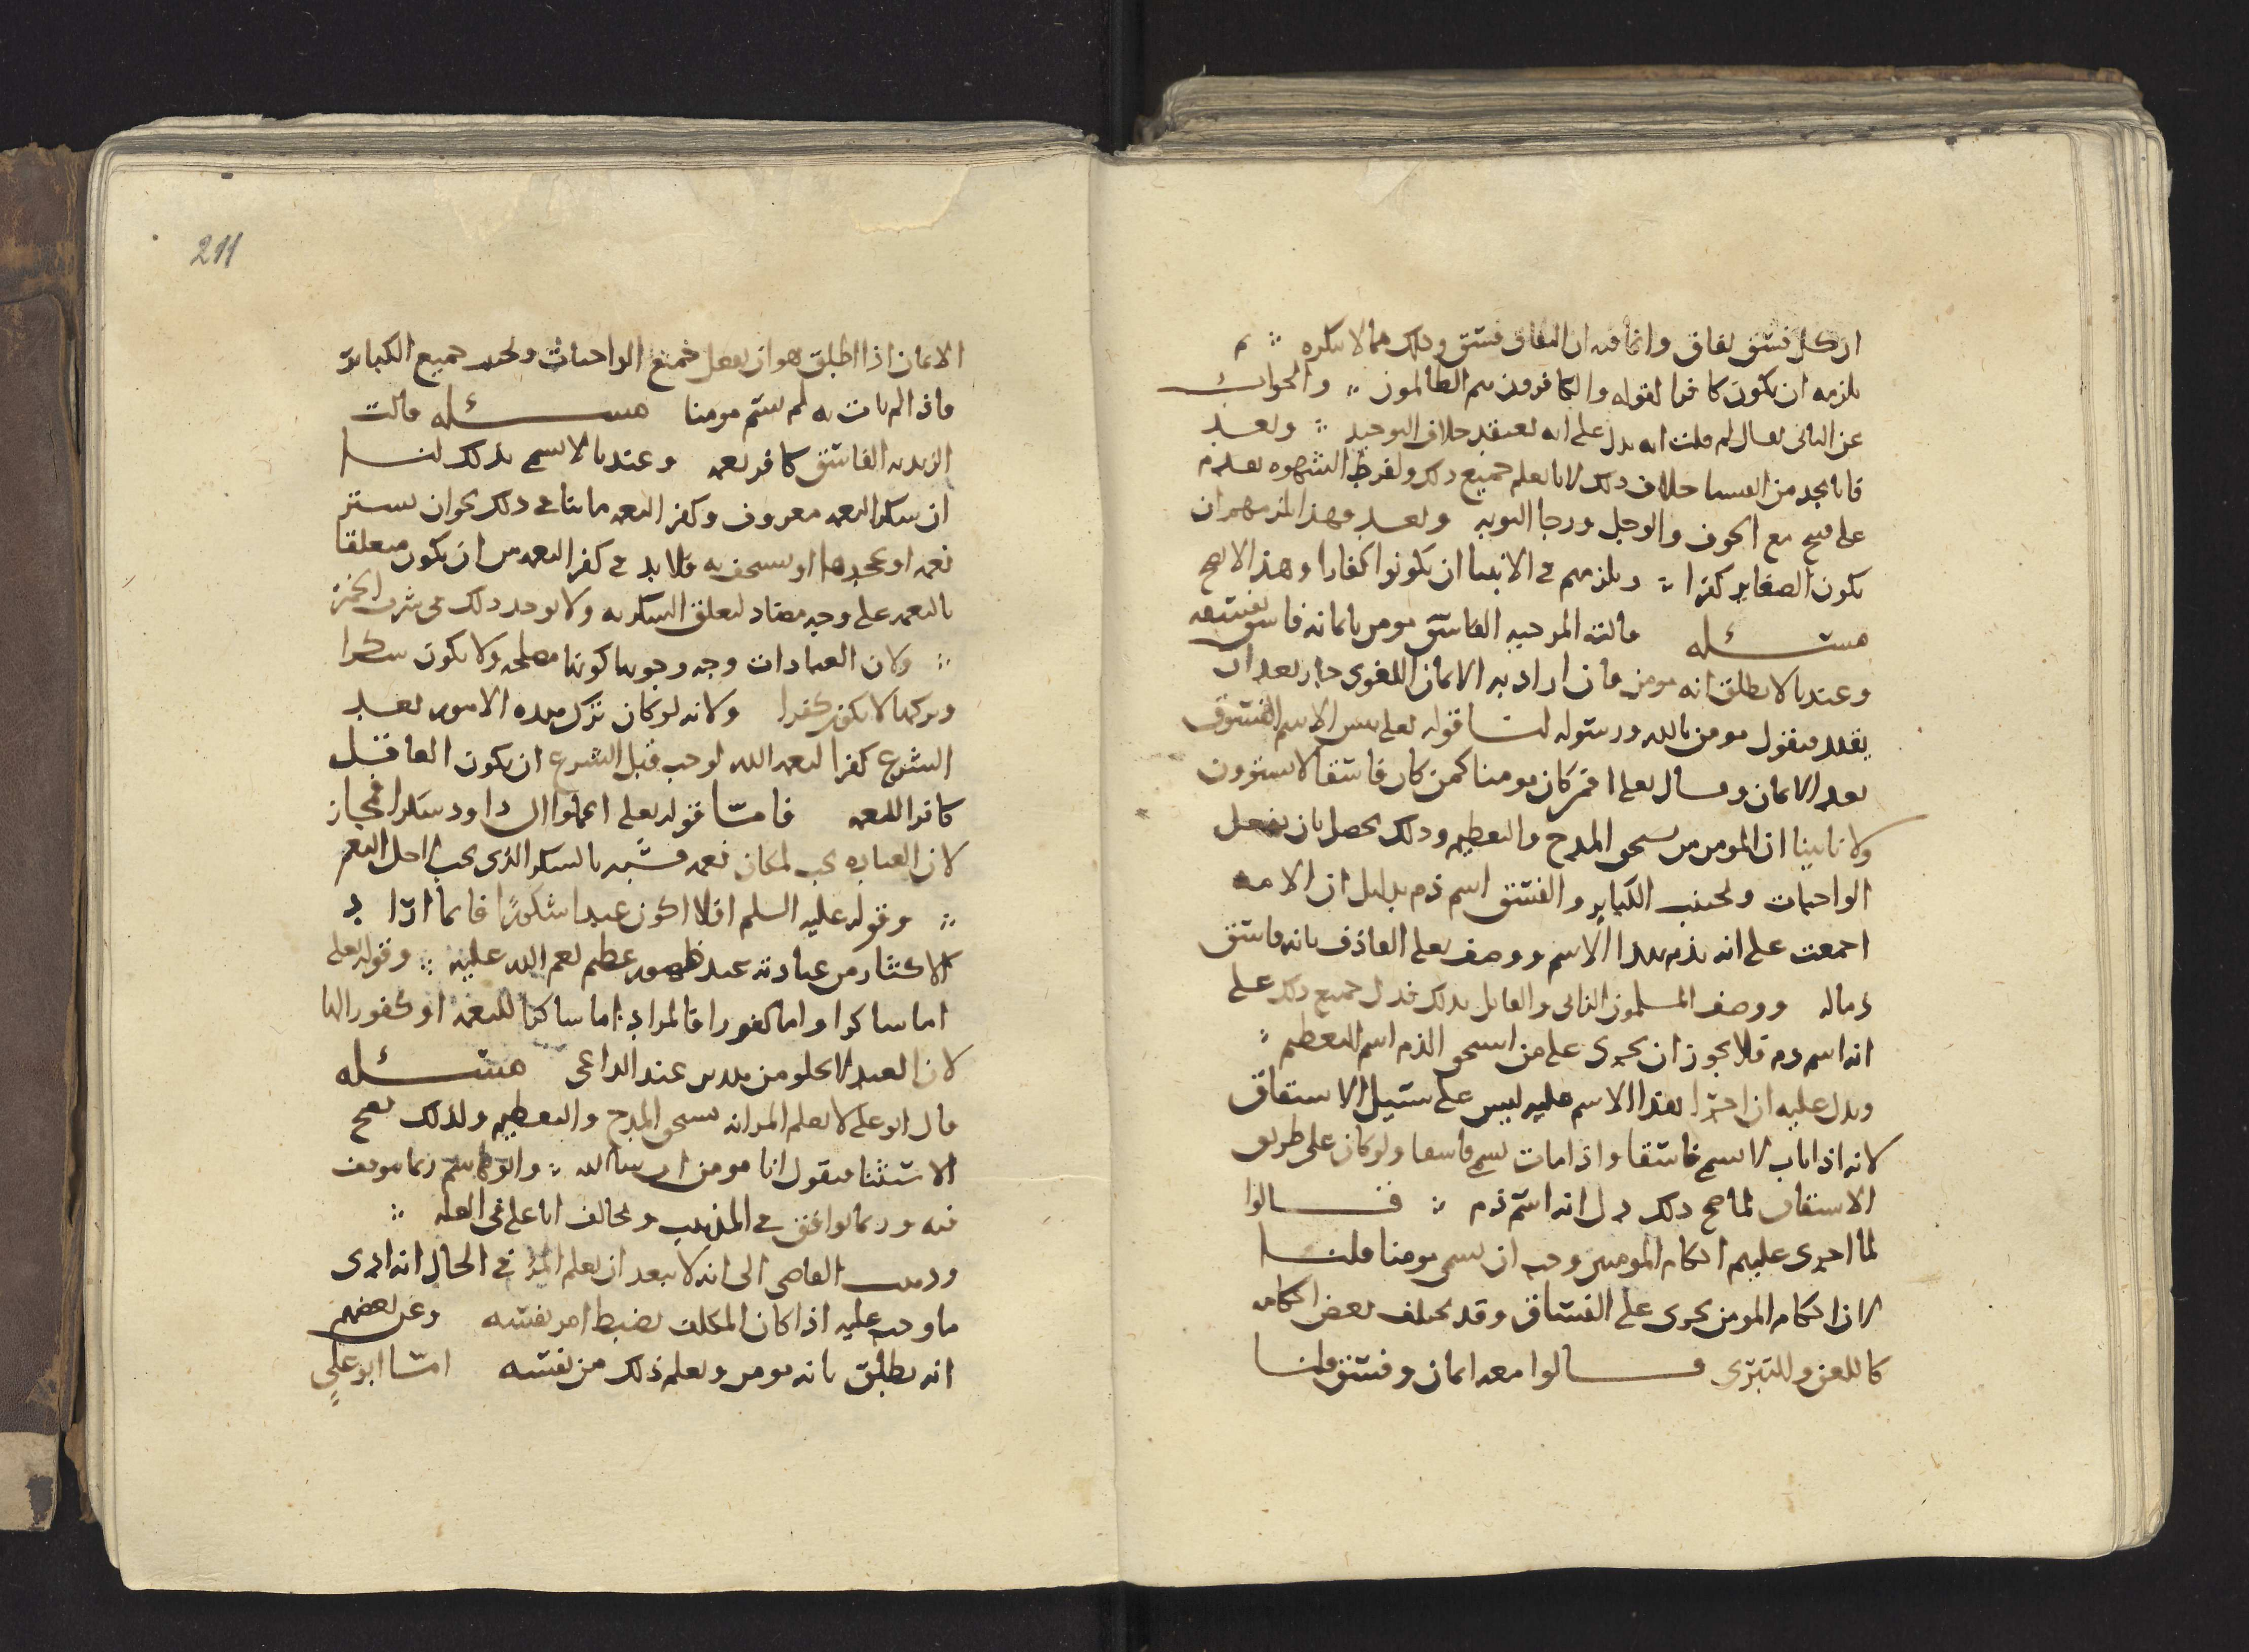 ان كل فسق نفاق وانما فيه ان النفاق فسق وذلك مما لا ننكره ∴ ثم
يلزمه ان يكون كافرا لقوله والكافرون هم الظالمون ∴ والجواب
عن الثاني يقال لم قلت انه يدل على انه يعتقد خلاف التوحيد ∴ وبعد
فانا نجد من انفسنا خلاف ذلك لانا نعلم جميع ذلك ولفرط الشهوه يقدم
على قبيح مع الخوف والوجل ورجا التوبه وبعد فهذا يلزمهم ان
تكون الصغاير كفرا ∴ ويلزمهم في الانبيا ان يكونوا كفارا وهذا لا يصح
مسئله قالت المرجيه الفاسق مومن بايمانه فاسق بفسقه
وعندنا لا يطلق انه مومن فان اراد به الايمان اللغوي جاز بعد ان
يقيد فيقول مومن بالله ورسوله لنا قوله تعلى بيس الاسم الفسوق
بعد الايمان وقال تعلى افمن كان مومنا كمن كان فاسقا لا يستوون
ولانا بينا ان المومن من يستحق المدح والتعظيم وذلك يحصل بان يفعل
الواجبات ويجتنب الكباير والفسق اسم ذم بدليل ان الامه
اجمعت على انه يذم بهذا الاسم ووصف تعلى القاذف بانه فاسق
ذماله ووصف المسلمون الزاني والقاتل بذلك فدل جميع ذلك على
انه اسم ذم فلا يجوز ان يجرى على من استحق الذم اسم التعظيم ∴
ويدل عليه ان اجرا هذا الاسم عليه ليس على سبيل الاشتقاق
لانه اذا تاب لا يسمى فاسقا واذا مات يسمى فاسقا ولو كان على طريق
الاشتقاق لما صح ذلك دل انه اسم ذم ∴ قالوا
لما اجرى عليهم احكام المومنين وجب ان يسمى مومنا قلنا
لان احكام المومن يجرى على الفساق وقد يختلف بعض احكامه
كاللعن والتبرى قالوا معه ايمان وفسق قلنا
211
الايمان اذا اطلق هو ان يفعل جميع الواجبات ويجتنب جميع الكباير
فاذا لم يات به لم يسم مومنا مسئله قالت
الزيديه الفاسق كافر نعمه وعندنا لا يسمى بذلك لنا
ان شكر النعمه معروف وكفر النعمه ما ينافي ذلك نحو ان يستر
نعمه او يجحدها او يستخف به فلا بد في كفر النعمه من ان يكون متعلقا
بالنعمه على وجه مضاد لتعلق الشكر به ولا يوجد ذلك في شرب الخمر
∴ ولان العبادات وجه وجوبها كونها مصلحه ولا يكون شكرا
وتركها لا يكون كفرا ولانه لو كان ترك هذه الامور بعد
الشرع كفرا لنعمه الله لوجب قبل الشرع ان يكون العاقل
كافرا للنعمه فاما قوله تعلى اعملوا ال داود شكرا فمجاز
لان العباده يجب لمكان نعمه فشبه بالشكر الذي يجب لاجل النعم
∴ وقوله عليه السلم افلا اكون عبدا شكورا فانما اراد
الاكثار من عبادته عند ظهور عظيم نعم الله عليه ∴ وقوله تعلى
اما شاكرا واما كفورا فالمراد اما شاكرا للنعمه او كفورا لها
لان العبد لا يخلو من هذين عند الداعي مسئله
قال ابو على لا يعلم المر انه يستحق المدح والتعظيم ولذلك يصح
الاستثنا فيقول انا مومن ان شا الله ∴ وابو هاشم ربما توقف
فيه وربما يوافق في المذهب ويخالف ابا على في العله ∴
وذهب القاضي الى انه لا يبعد ان يعلم المر في الحال انه ادى
ما وجب عليه اذا كان المكلف يضبط امر نفسه وعن بعضهم
انه يطلق بانه مومن ويعلم ذلك من نفسه امّا ابو علي